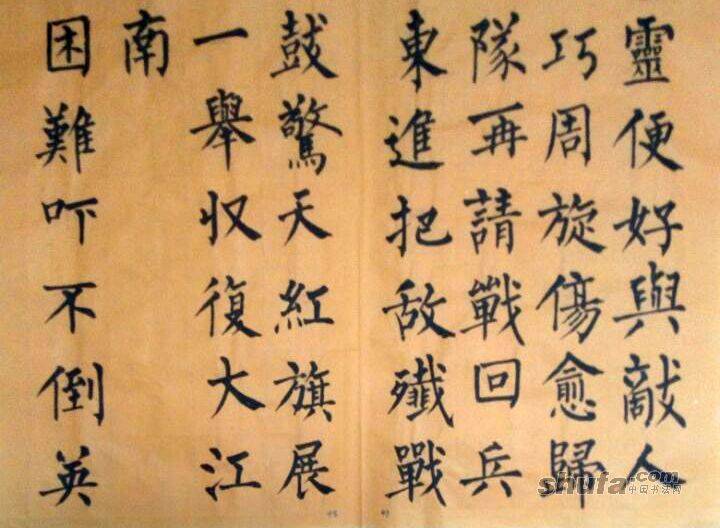 靈便好與敵人
巧周旋傷愈歸
隊再請戰回兵
東進把敌殲戰
鼓驚天紅旗展
一舉収復大江
南
困難吓不倒英
shufa.com
中国书法网